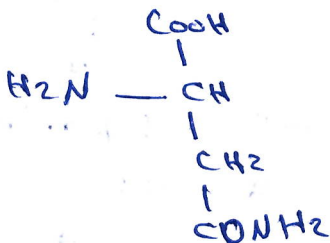 COOH
H2N — CH
CH2
CONH2